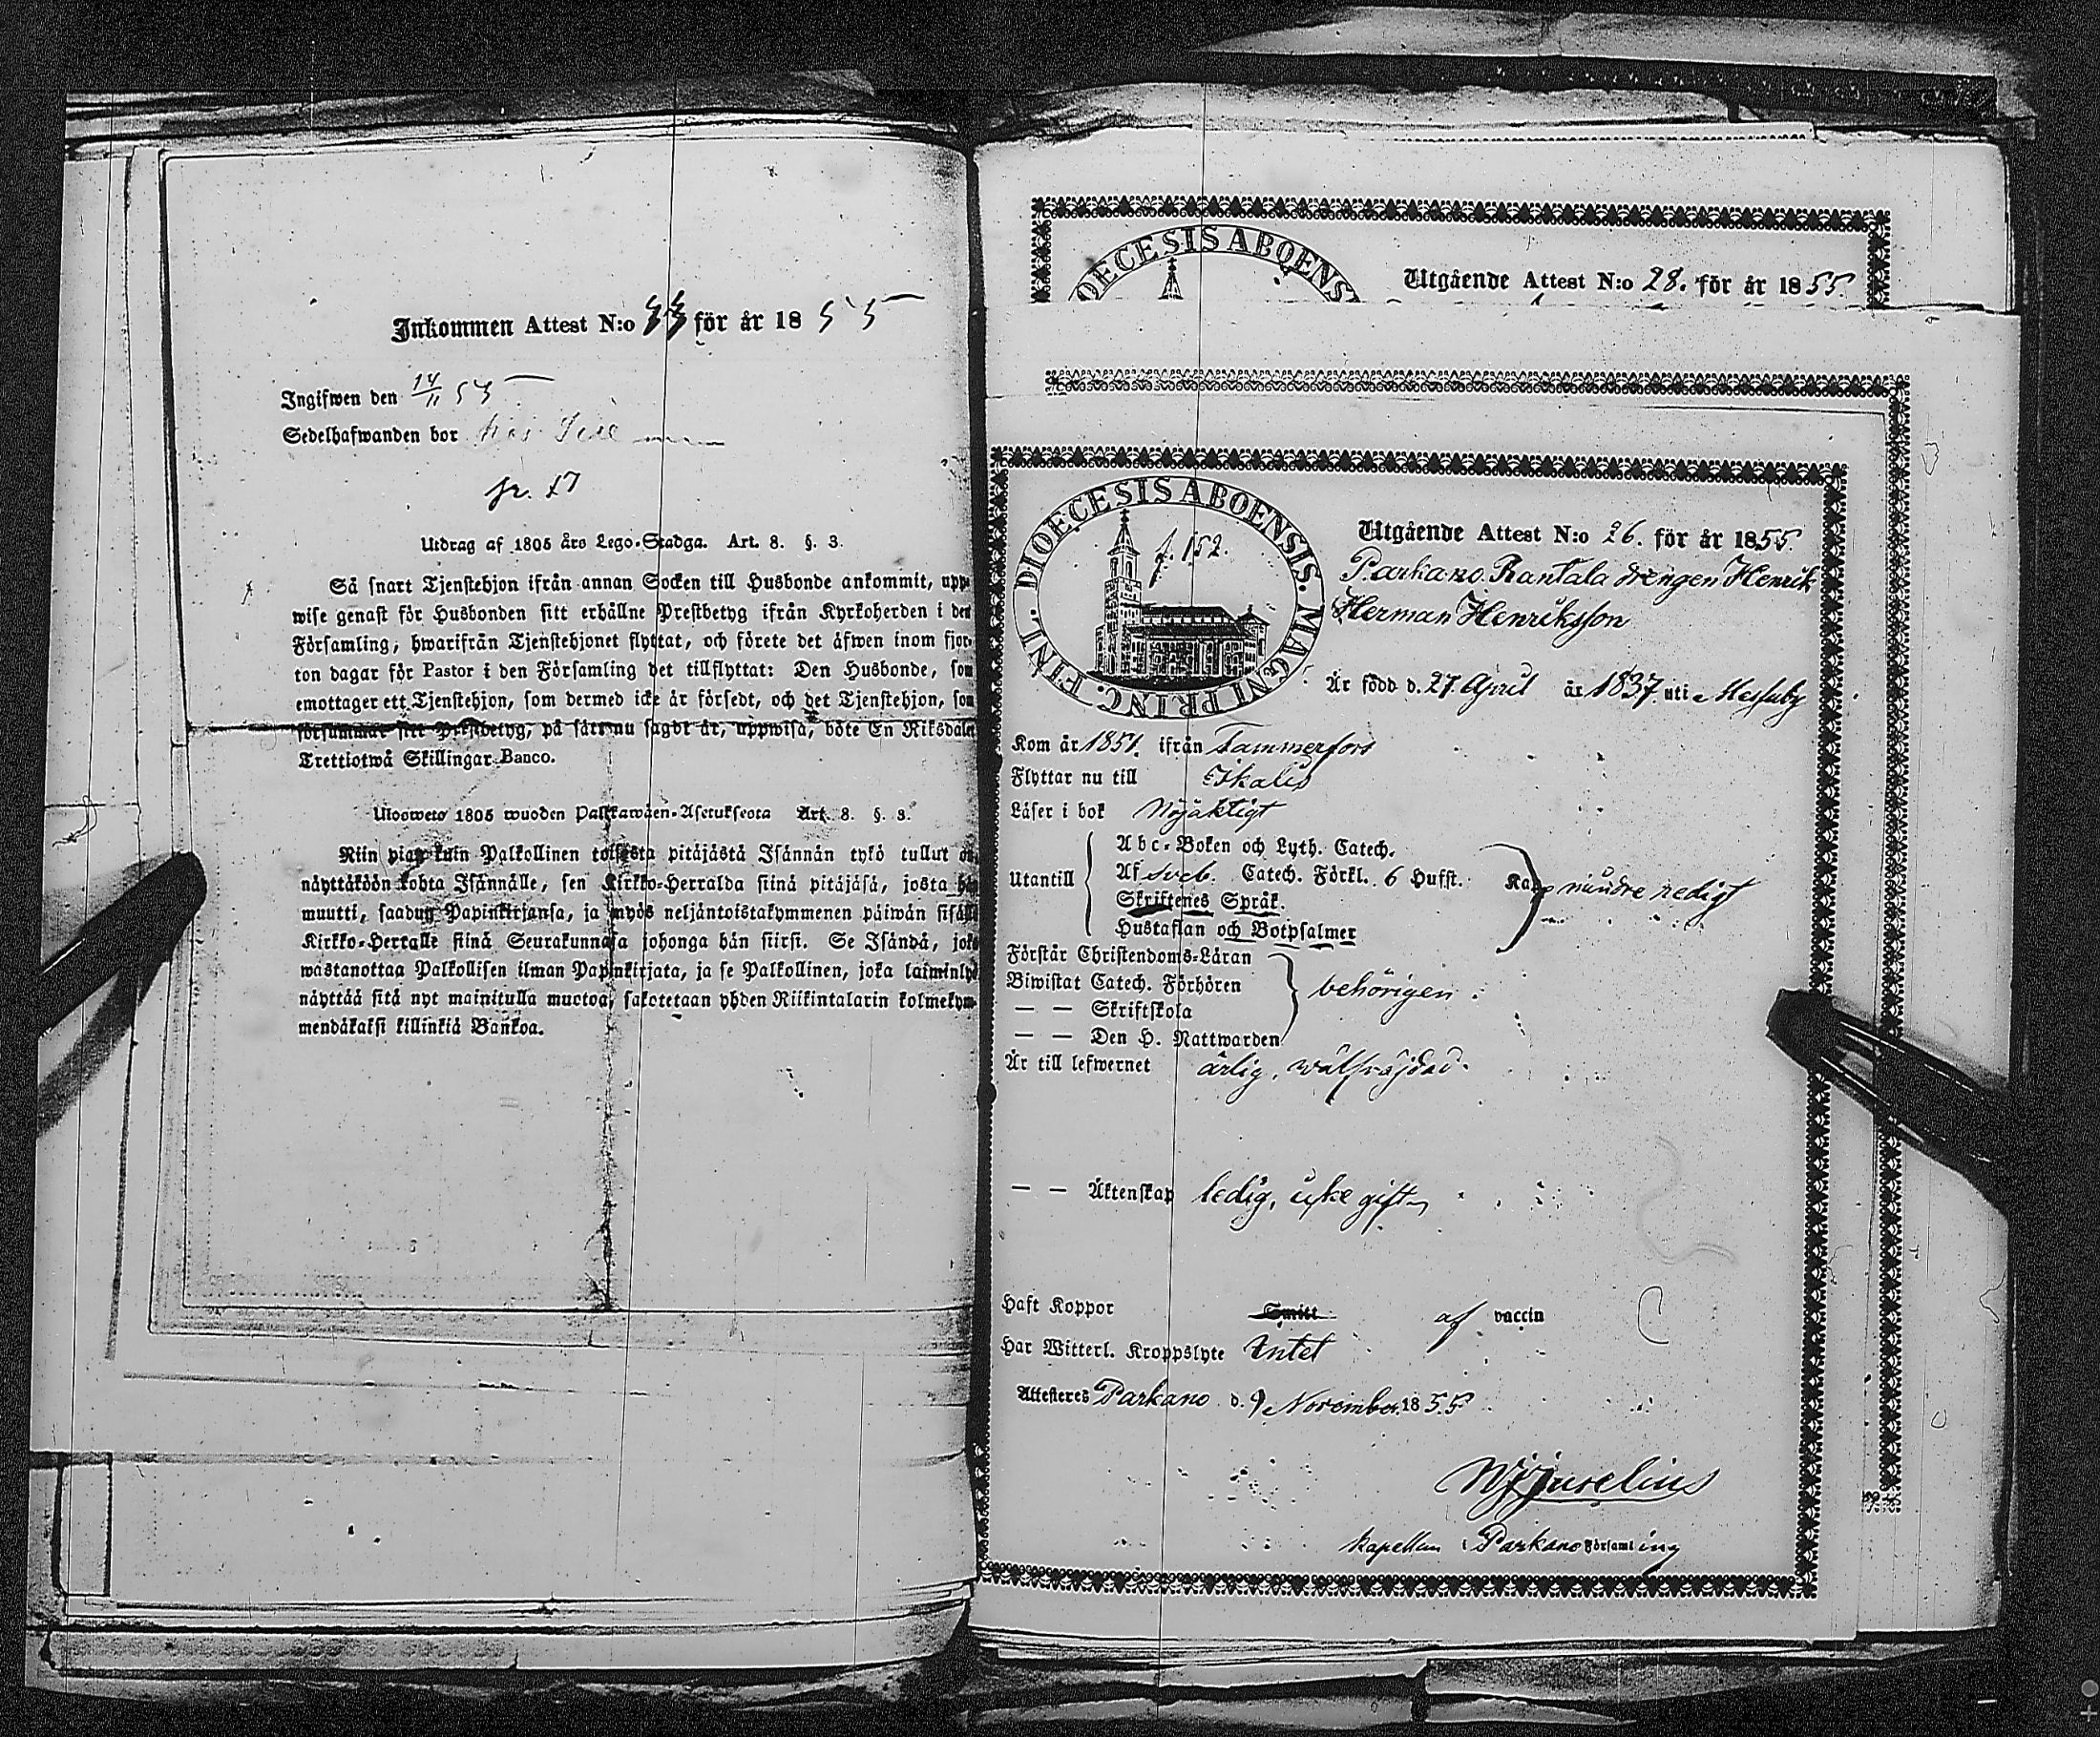 Inkommen Attest N:o för år 1855
Ingifwen den 14/11 55
Sedelhafwanden bor hos
Utdrag af 1805 års Lego-Stadga. Art. 8. §. 3.
Så snart Tjenstehjon ifrån annan Socken till Husbonde ankommit, upp-
wise genast för Husbonden sitt erhållne Prestbetyg ifrån Kyrkoherden i den
Församling, hwarifrån Tjenstehjonet flyttat, och förete det äfwen inom fjor-
ton dagar för Pastor i den Församling det tillflyttat: Den Husbonde, som
emottager ett Tjenstehjon, som dermed icke är försedt, och det Tjenstehjon, som
försummar sitt Prestbetyg, på sätt nu sagdt är, uppwisa, böte En Riksdaler
Trettiotwå Skillingar Banco.
Ulosweto 1805 wuoden Palkkawäen-Asetuksesta Art. 8. §. 3.
Niin pian kuin Palkollinen toisesta pitäjästä Isännän tykö tullut on,
näyttäköön kohta Isännälle, sen Kirkko-Herralda siinä pitäjäsä, josta hän
muutti, saadun Papinkirjansa, ja myös neljäntoistakymmenen päiwän sisällä
Kirkko-Herralle siinä Seurakunnasa johonga hän siirsi. Se Isändä, joka
wastanottaa Palkollisen ilman Papinkirjata, ja se Palkollinen, joka laiminlyö
näyttää sitä nyt mainitulla muotoa, sakotetaan yhden Riikintalarin kolmekym-
mendäkaksi killinkiä Bankoa.
DIOECESIS ABOENS
Utgående Attest N:o 28. för år 1855.
DIOECESIS ABOENSIS. MAGNI PRINC. FINL.
f. 152.
Utgående Attest N:o 26. för år 1855.
Parkano Rantala drengen Henrik
Herman Henriksson
Är född d. 27 April år 1837 uti Messuby
Kom år 1851. ifrån Tammerfors
Flyttar nu till Ikalis
Läser i bok Nöjaktigt
Utantill
Abc-Boken och Lyth. Catech.
Af Sveb. Catech. Förkl. 6 Hufst.
Skriftenes Språk.
Hustaflan och Botpsalmer
Kan mindre redigt
Förstår Christendoms-Läran
Biwistat Catech. Förhören
— — Skriftskola
— — Den H. Nattwarden
behörigen.
Är till lefwernet ärlig, wälfräjdad.
— — Äktenskap ledig, icke gift
Haft Koppor Smitt af vaccin
Har Witterl. Kroppslyte Intet
Attesteres Parkano d. 9 November 1855
Kapellan i Parkano Församling